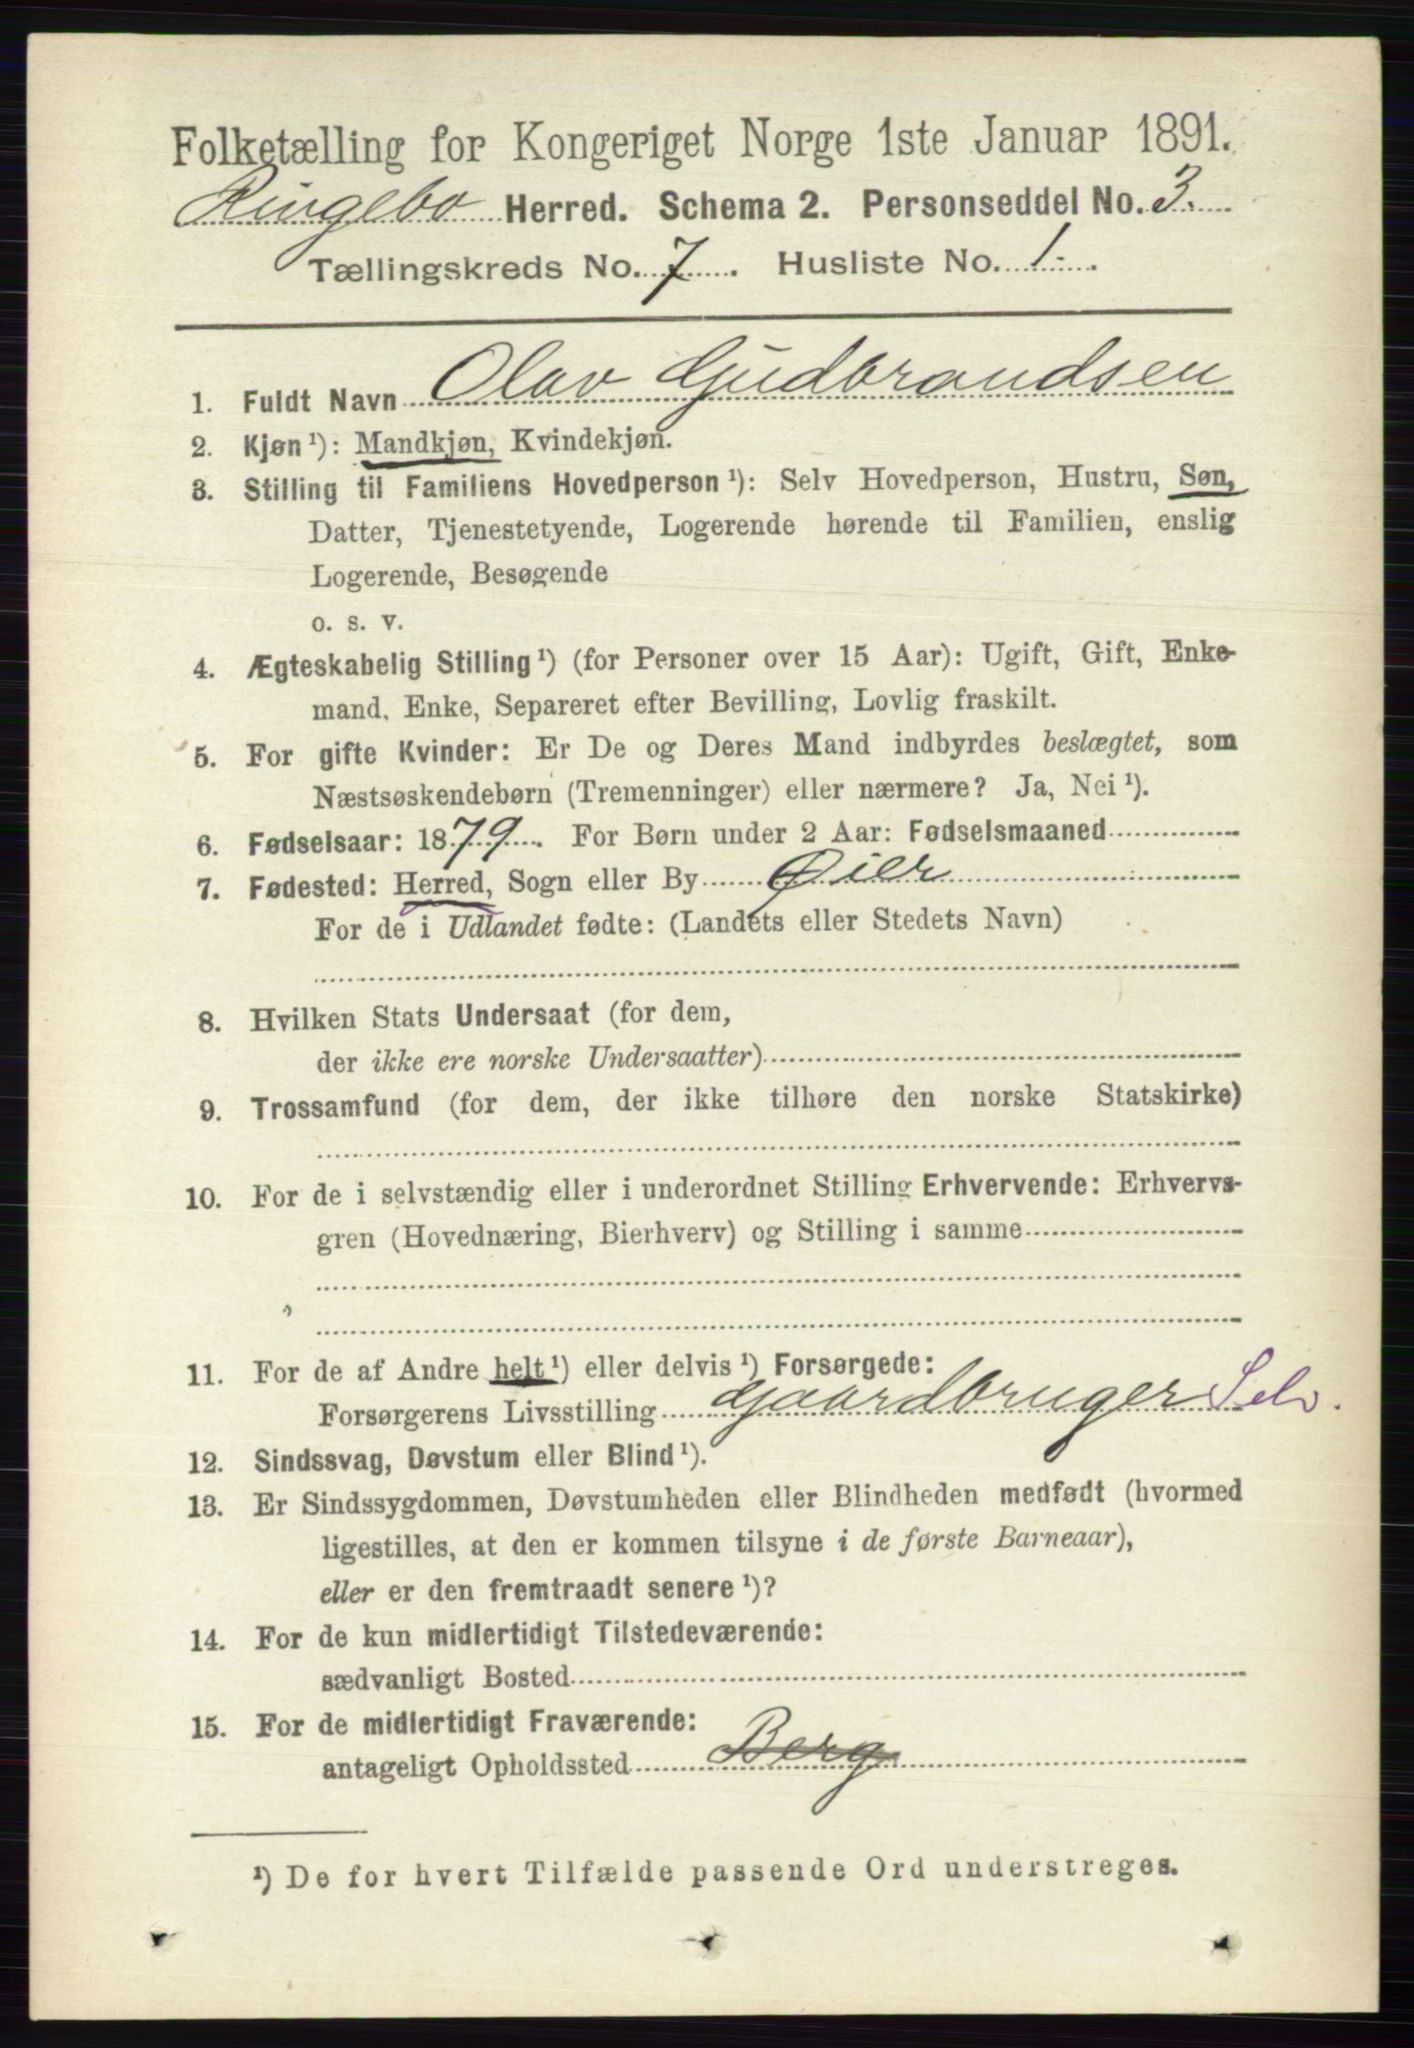 Folketælling for Kongeriget Norge 1ste Januar 1891.
Ringebo Herred. Schema 2. Personseddel No. 3.
Tællingskreds No. 7. Husliste No. 1.
1. Fuldt Navn Olav Gudbrandsen
2. Kjøn ¹): Mandkjøn, Kvindekjøn.
3. Stilling til Familiens Hovedperson ¹): Selv Hovedperson, Hustru, Søn,
Datter, Tjenestetyende, Logerende hørende til Familien, enslig
Logerende, Besøgende
o. s. v.
4. Ægteskabelig Stilling ¹) (for Personer over 15 Aar): Ugift, Gift, Enke-
mand, Enke, Separeret efter Bevilling, Lovlig fraskilt.
5. For gifte Kvinder: Er De og Deres Mand indbyrdes beslægtet, som
Næstsøskendebørn (Tremenninger) eller nærmere? Ja, Nei ¹).
6. Fødselsaar: 1879. For Børn under 2 Aar: Fødselsmaaned
7. Fødested: Herred, Sogn eller By Øier
For de i Udlandet fødte: (Landets eller Stedets Navn)
8. Hvilken Stats Undersaat (for dem,
der ikke ere norske Undersaatter)
9. Trossamfund (for dem, der ikke tilhøre den norske Statskirke)
10. For de i selvstændig eller i underordnet Stilling Erhvervende: Erhvervs-
gren (Hovednæring, Bierhverv) og Stilling i samme
11. For de af Andre helt ¹) eller delvis ¹) Forsørgede:
Forsørgerens Livsstilling Gaardbruger Selv.
12. Sindssvag, Døvstum eller Blind ¹).
13. Er Sindssygdommen, Døvstumheden eller Blindheden medfødt (hvormed
ligestilles, at den er kommen tilsyne i de første Barneaar),
eller er den fremtraadt senere ¹)?
14. For de kun midlertidigt Tilstedeværende:
sædvanligt Bosted
15. For de midlertidigt Fraværende:
antageligt Opholdssted Berg
¹) De for hvert Tilfælde passende Ord understreges.